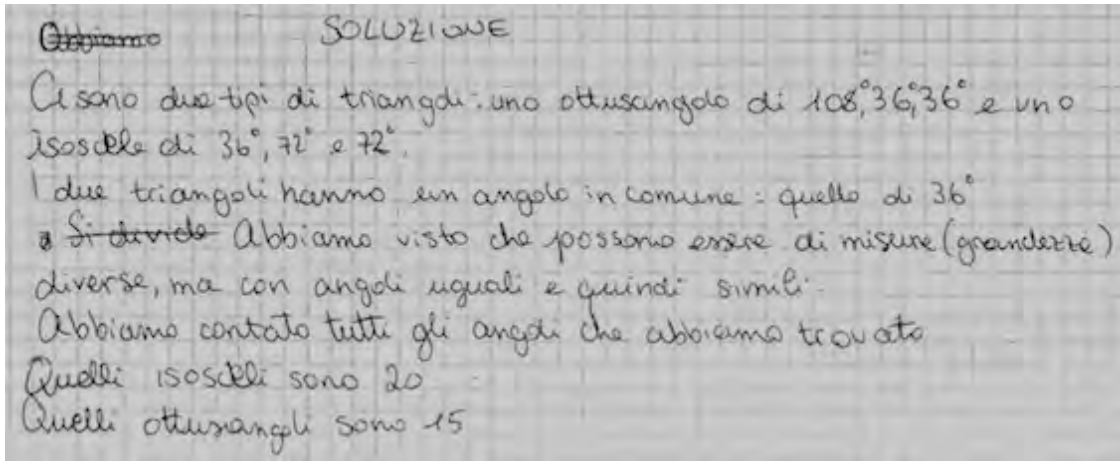 Abbiamo SOLUZIONE
Ci sono due tipi di triangoli: uno ottusangolo di 108°,36°,36° e uno
isoscele di 36°, 72° e 72°.
I due triangoli hanno un angolo in comune: quello di 36°
Si divide Abbiamo visto che possono essere di misure (grandezze)
diverse, ma con angoli uguali e quindi simili.
Abbiamo contato tutti gli angoli che abbiamo trovato
Quelli isosceli sono 20
Quelli ottusangoli sono 15